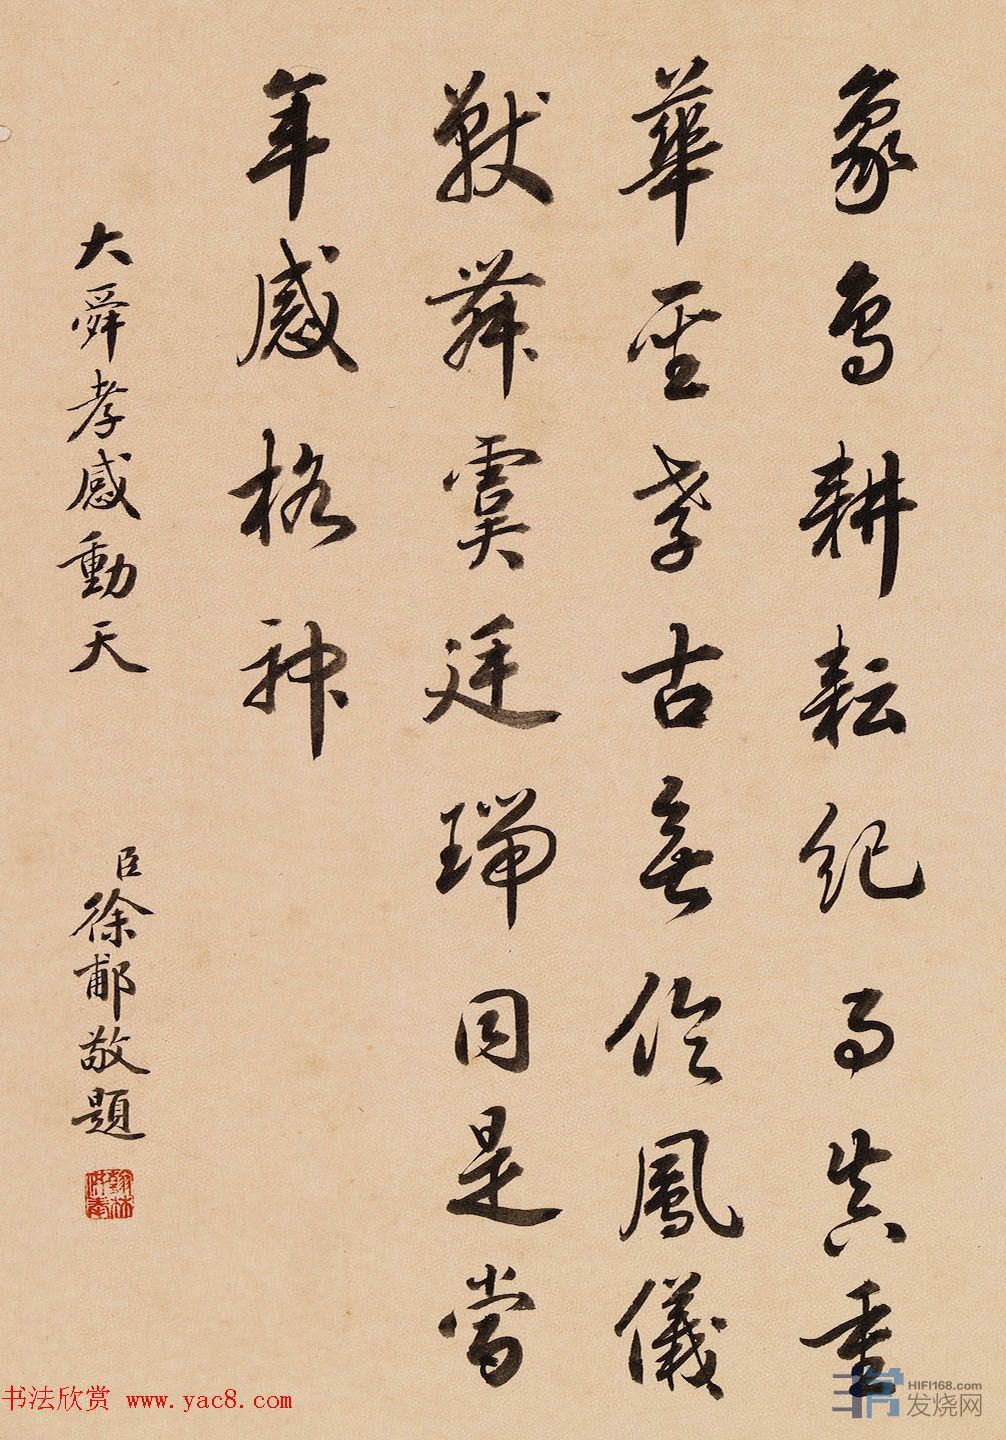 象鳥耕耘紀事真重
華至孝古無倫鳳儀
獸舞虞廷瑞同是當
年感格神
大舜孝感動天
臣徐郙敬題
书法欣赏 www.yac8.com
HIFI168.com
发烧网